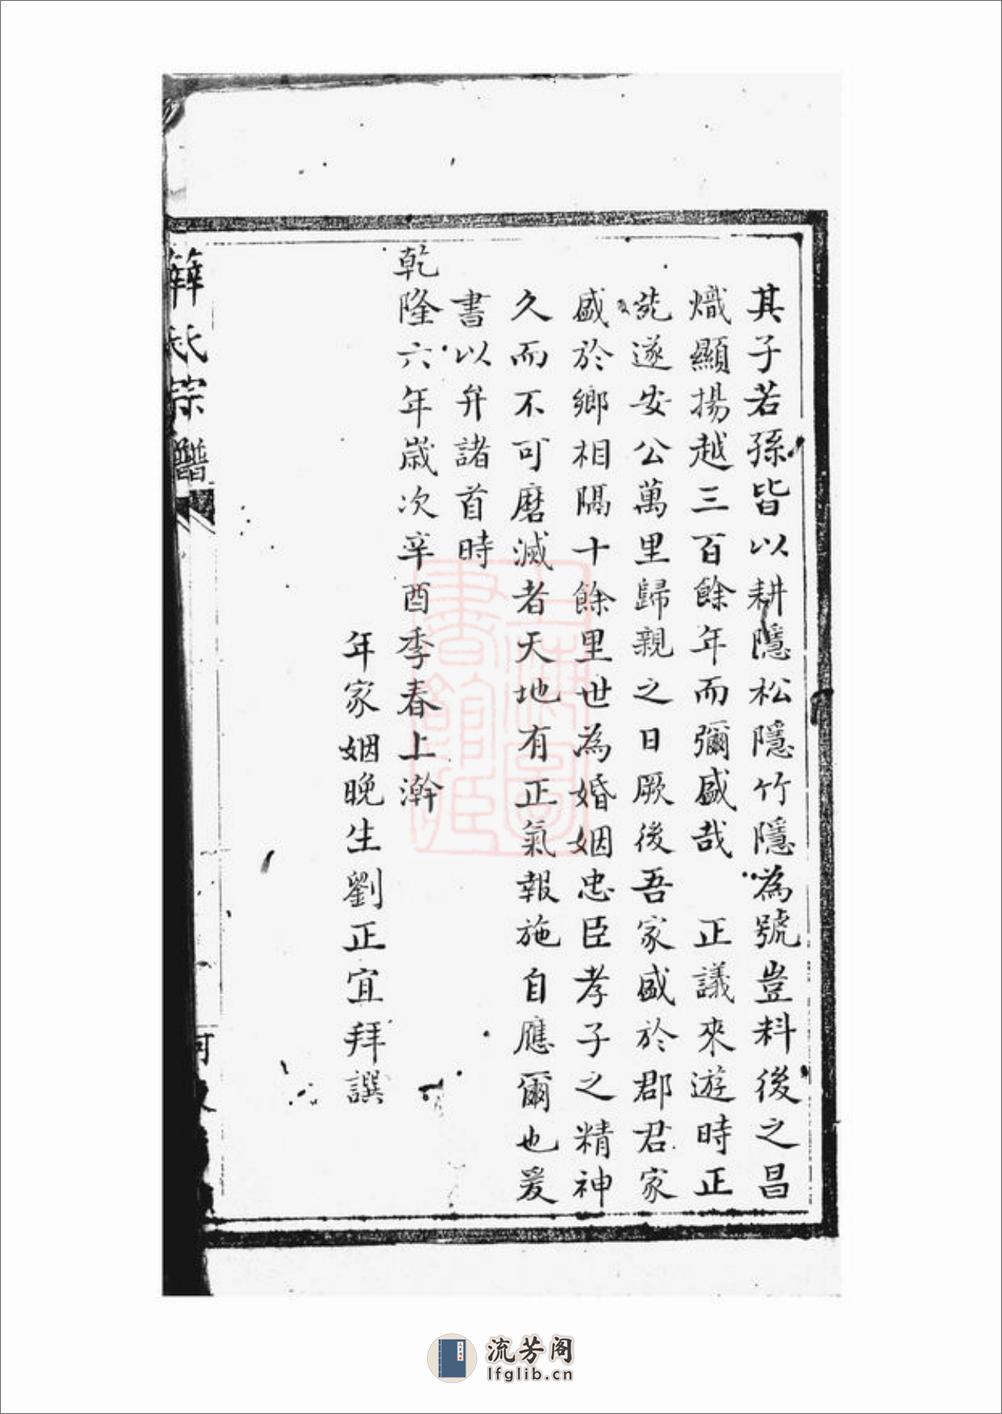 其子若孫皆以耕隱松隱竹隱為號豈料後之昌
熾顯揚越三百餘年而彌盛哉 正議來遊時正
菀遂安公萬里歸親之日厥後吾家盛於郡君家
盛於鄉相隔十餘里世為婚姻忠臣孝子之精神
久而不可磨滅者天地有正氣報施自應爾也爰
書以弁諸首時
乾隆六年歲次辛酉季春上澣
年家姻晚生劉正宜拜譔
氏宗譜
上海圖書館藏
流芳阁
lfglib.cn